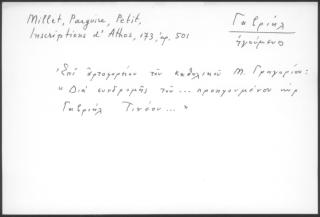 Millet, Pargoire, Petit,
Inscriptions d'Athos, 173, ἀρ. 501
Γαβριήλ
ἡγούμενος
Ἐπὶ ἀρτοφορίου τοῦ καθολικοῦ Μ. Γρηγορίου:
« Διὰ συνδρομῆς τοῦ ... προηγουμένου κὺρ
Γαβριήλ Τινόου ... »